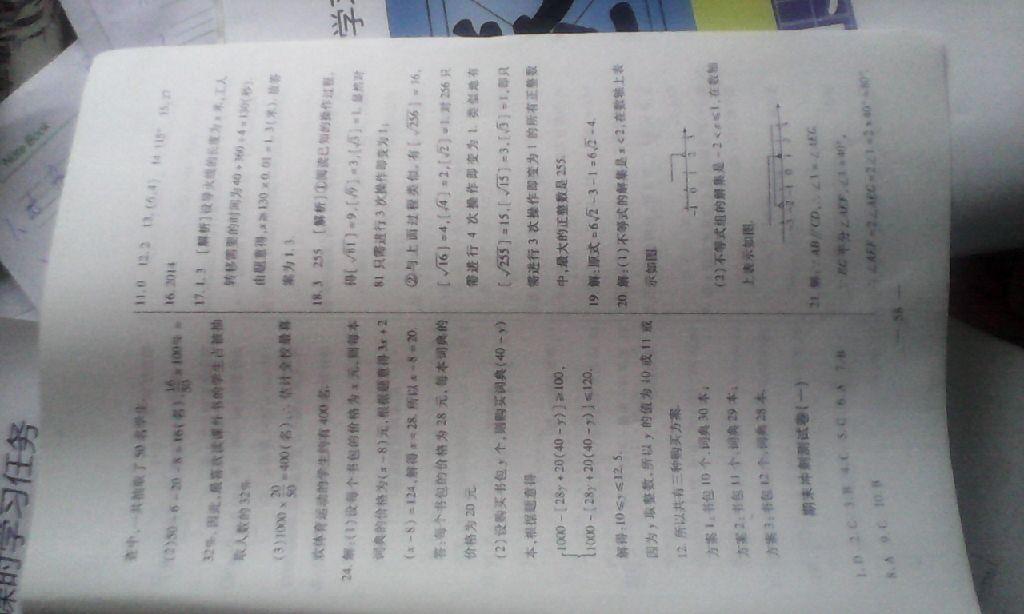 查中,一共抽取了50名学生.
(2)50-6-20-8=16(名),16/50×100%=
32%,因此,最喜欢读课外书的学生占被抽
取人数的32%.
(3)1000×20/50=400(名),∴估计全校最喜
欢体育运动的学生约有400名.
24.解:(1)设每个书包的价格为x元,则每本
词典的价格为(x-8)元,根据题意得3x+2
(x-8)=124,解得x=28.所以x-8=20.
答:每个书包的价格为28元,每本词典的
价格为20元.
(2)设购买书包y个,则购买词典(40-y)
本,根据题意得
{1000-[28y+20(40-y)]≥100,
1000-[28y+20(40-y)]≤120.
解得:10≤y≤12.5.
因为y取整数,所以y的值为10或11或
12.所以共有三种购买方案.
方案1:书包10个,词典30本;
方案2:书包11个,词典29本;
方案3:书包12个,词典28本.
期末冲刺测试卷(一)
1.D 2.C 3.B 4.C 5.C 6.A 7.B
8.A 9.C 10.B
11.0 12.2 13.(6,4) 14.110° 15.27
16.2014
17.1.3 [解析]设导火线的长度为x米,工人
转移需要的时间为40+360÷4=130(秒).
由题意得,x≥130×0.01=1.3(米).故答
案为1.3.
18.3 255 [解析]①阅读已知的操作过程,
得[√81]=9,[√9]=3,[√3]=1,显然对
81只需进行3次操作即变为1;
②与上面过程类似,有[√256]=16,
[√16]=4,[√4]=2,[√2]=1.对256只
需进行4次操作即变为1.类似地有
[√255]=15,[√15]=3,[√3]=1,即只
需进行3次操作即变为1的所有正整数
中,最大的正整数是255.
19.解:原式=6√2-3-1=6√2-4.
20.解:(1)不等式的解集是x<2,在数轴上表
示如图.
-1 0 1 2
(2)不等式组的解集是-2<x≤1,在数轴
上表示如图.
-3 -2 -1 0 1 2 3
21.解:∵AB∥CD,∴∠1=∠AEG.
∵EG平分∠AEF,∠1=40°,
∴∠AEF=2∠AEG=2∠1=2×40°=80°,
— 58 —
课时学习任务
学习